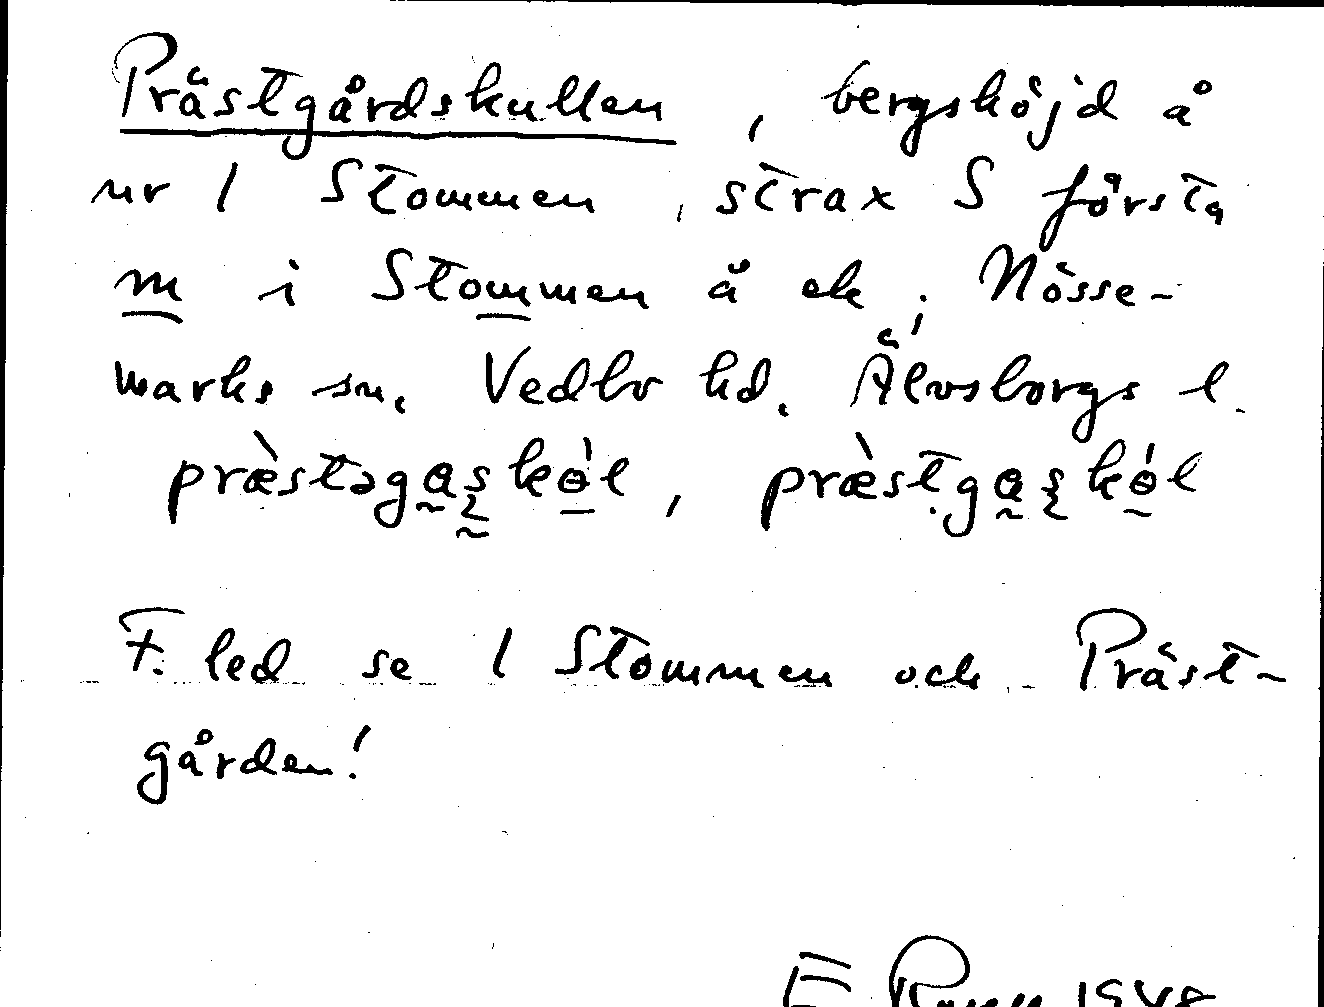 Prästgårdskullen, bergshöjd å
nr 1 Stommen, strax S första
m i Stommen å ek; Nösse-
marks sn, Vedbo hd. Älvsborgs l.
præ̀stəgɑʂkɵ́l, præ̀stgɑʂkɵ́l
F. led se 1 Stommen och Präst-
gården!
E